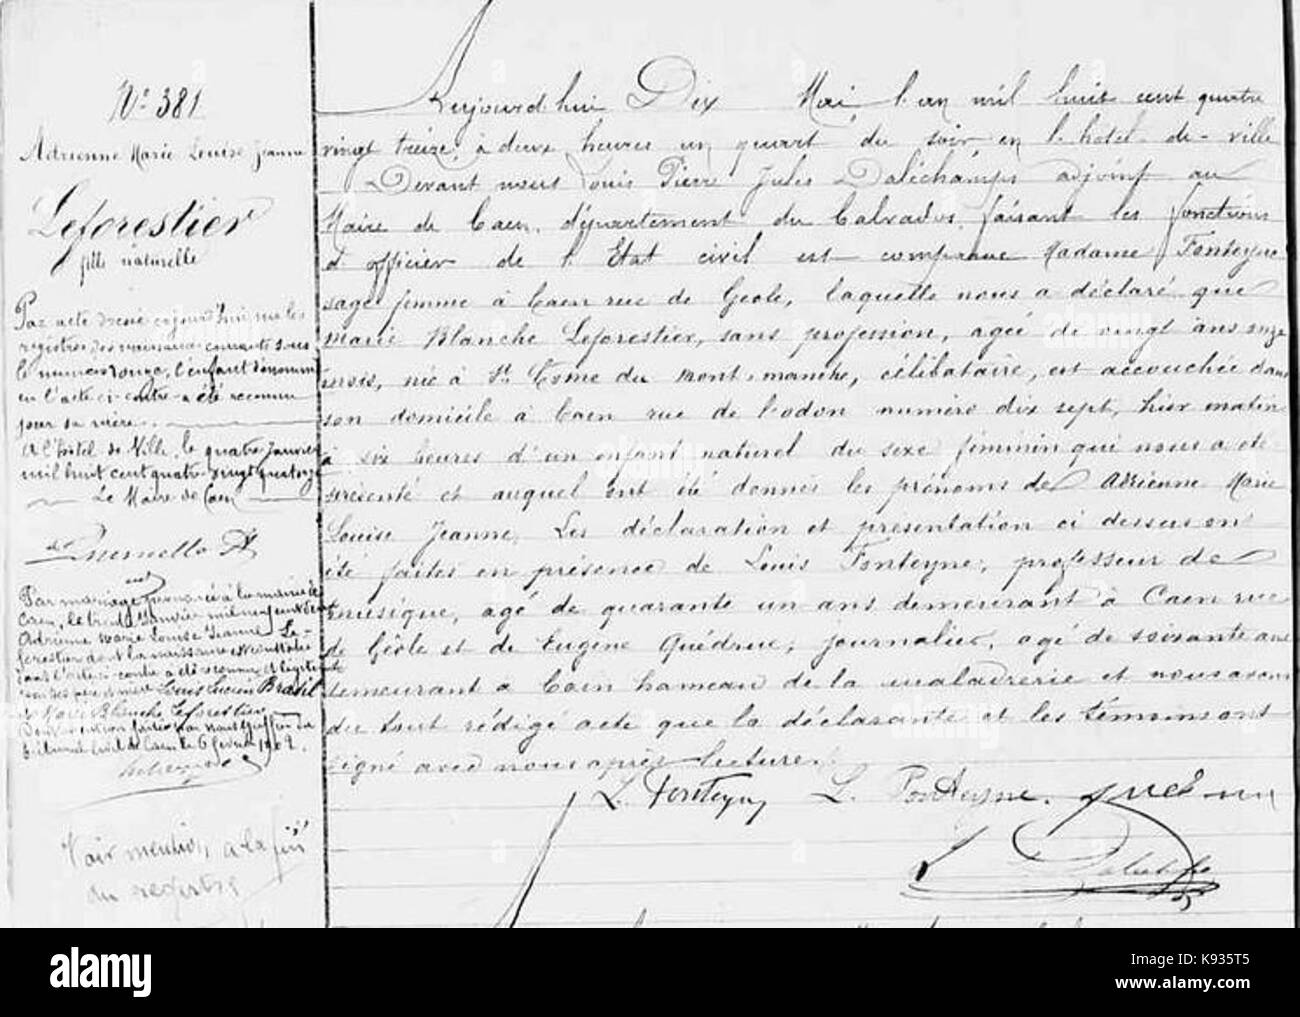 Nº 381
Adrienne Marie Louise Jeanne
Leforestier
fille naturelle
Par acte dressé ce jour d'hui sur les
registres des naissances courants sous
le numéro rouge, l'enfant dénommé
en l'acte ci-contre a été reconnu
par sa mère.
A l'hôtel de Ville, le quatre Janvier
mil huit cent quatre vingt quatorze
Le Maire de Caen
Par mariage prononcé à la mairie de
Caen, le trente Janvier mil neuf cent
Adrienne Marie Louise Jeanne Le-
forestier dont la naissance est constatée
dans l'acte ci-contre a été reconnue et légitimée
par ses père et mère Louis Lucien Brasil
et Marie Blanche Leforestier
tribunal civil de Caen le 6 février 1902.
Voir mention, à la fin
du registre
Aujourd'hui Dix Mai l'an mil huit cent quatre
vingt treize à deux heures un quart du soir en l'hôtel-de-ville
Devant nous Louis Pierre Jules Daléchamps adjoint au
Maire de Caen, département du Calvados, faisant les fonctions
d'officier de l'Etat civil est comparue Madame Fonteyne
sage femme à Caen rue de Geôle, laquelle nous a déclaré que
Marie Blanche Leforestier, sans profession, agée de vingt ans onze
mois, née à St Come du Mont, Manche, célibataire, est accouchée dans
son domicile à Caen rue de l'odon numéro dix sept, hier matin
à six heures d'un enfant naturel du sexe féminin qui nous a été
présenté et auquel ont été donnés les prénoms de Adrienne Marie
Louise Jeanne, Les déclaration et présentation ci dessus ont
été faites en présence de Louis Fonteyne, professeur de
musique, agé de quarante un ans demeurant à Caen rue
de Geôle et de Eugène Quédrue, journalier, agé de soixante ans
demeurant à Caen hameau de la maladrerie et nous avons
du tout rédigé acte que la déclarante et les témoins ont
signé avec nous après lecture.
L. Fonteyne L. Fonteyne
alamy
alamy
alamy
alamy
alamy
Image ID: K935T5
www.alamy.com